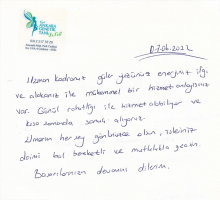 ANKARA
07.06.2022
Uzman kadronuz güler yüzünüz enerjiniz ilgi
ve alakanız ile mükemmel bir hizmet anlayışınız
var. Gönül rahatlığı ile hizmet alabiliyor ve
kısa zamanda sonuç alıyoruz.
Umarım herşey gönlünüzce olur, işleriniz
daimi bol bereketli ve mutlulukla geçsin.
Başarılarınızın devamını dilerim.